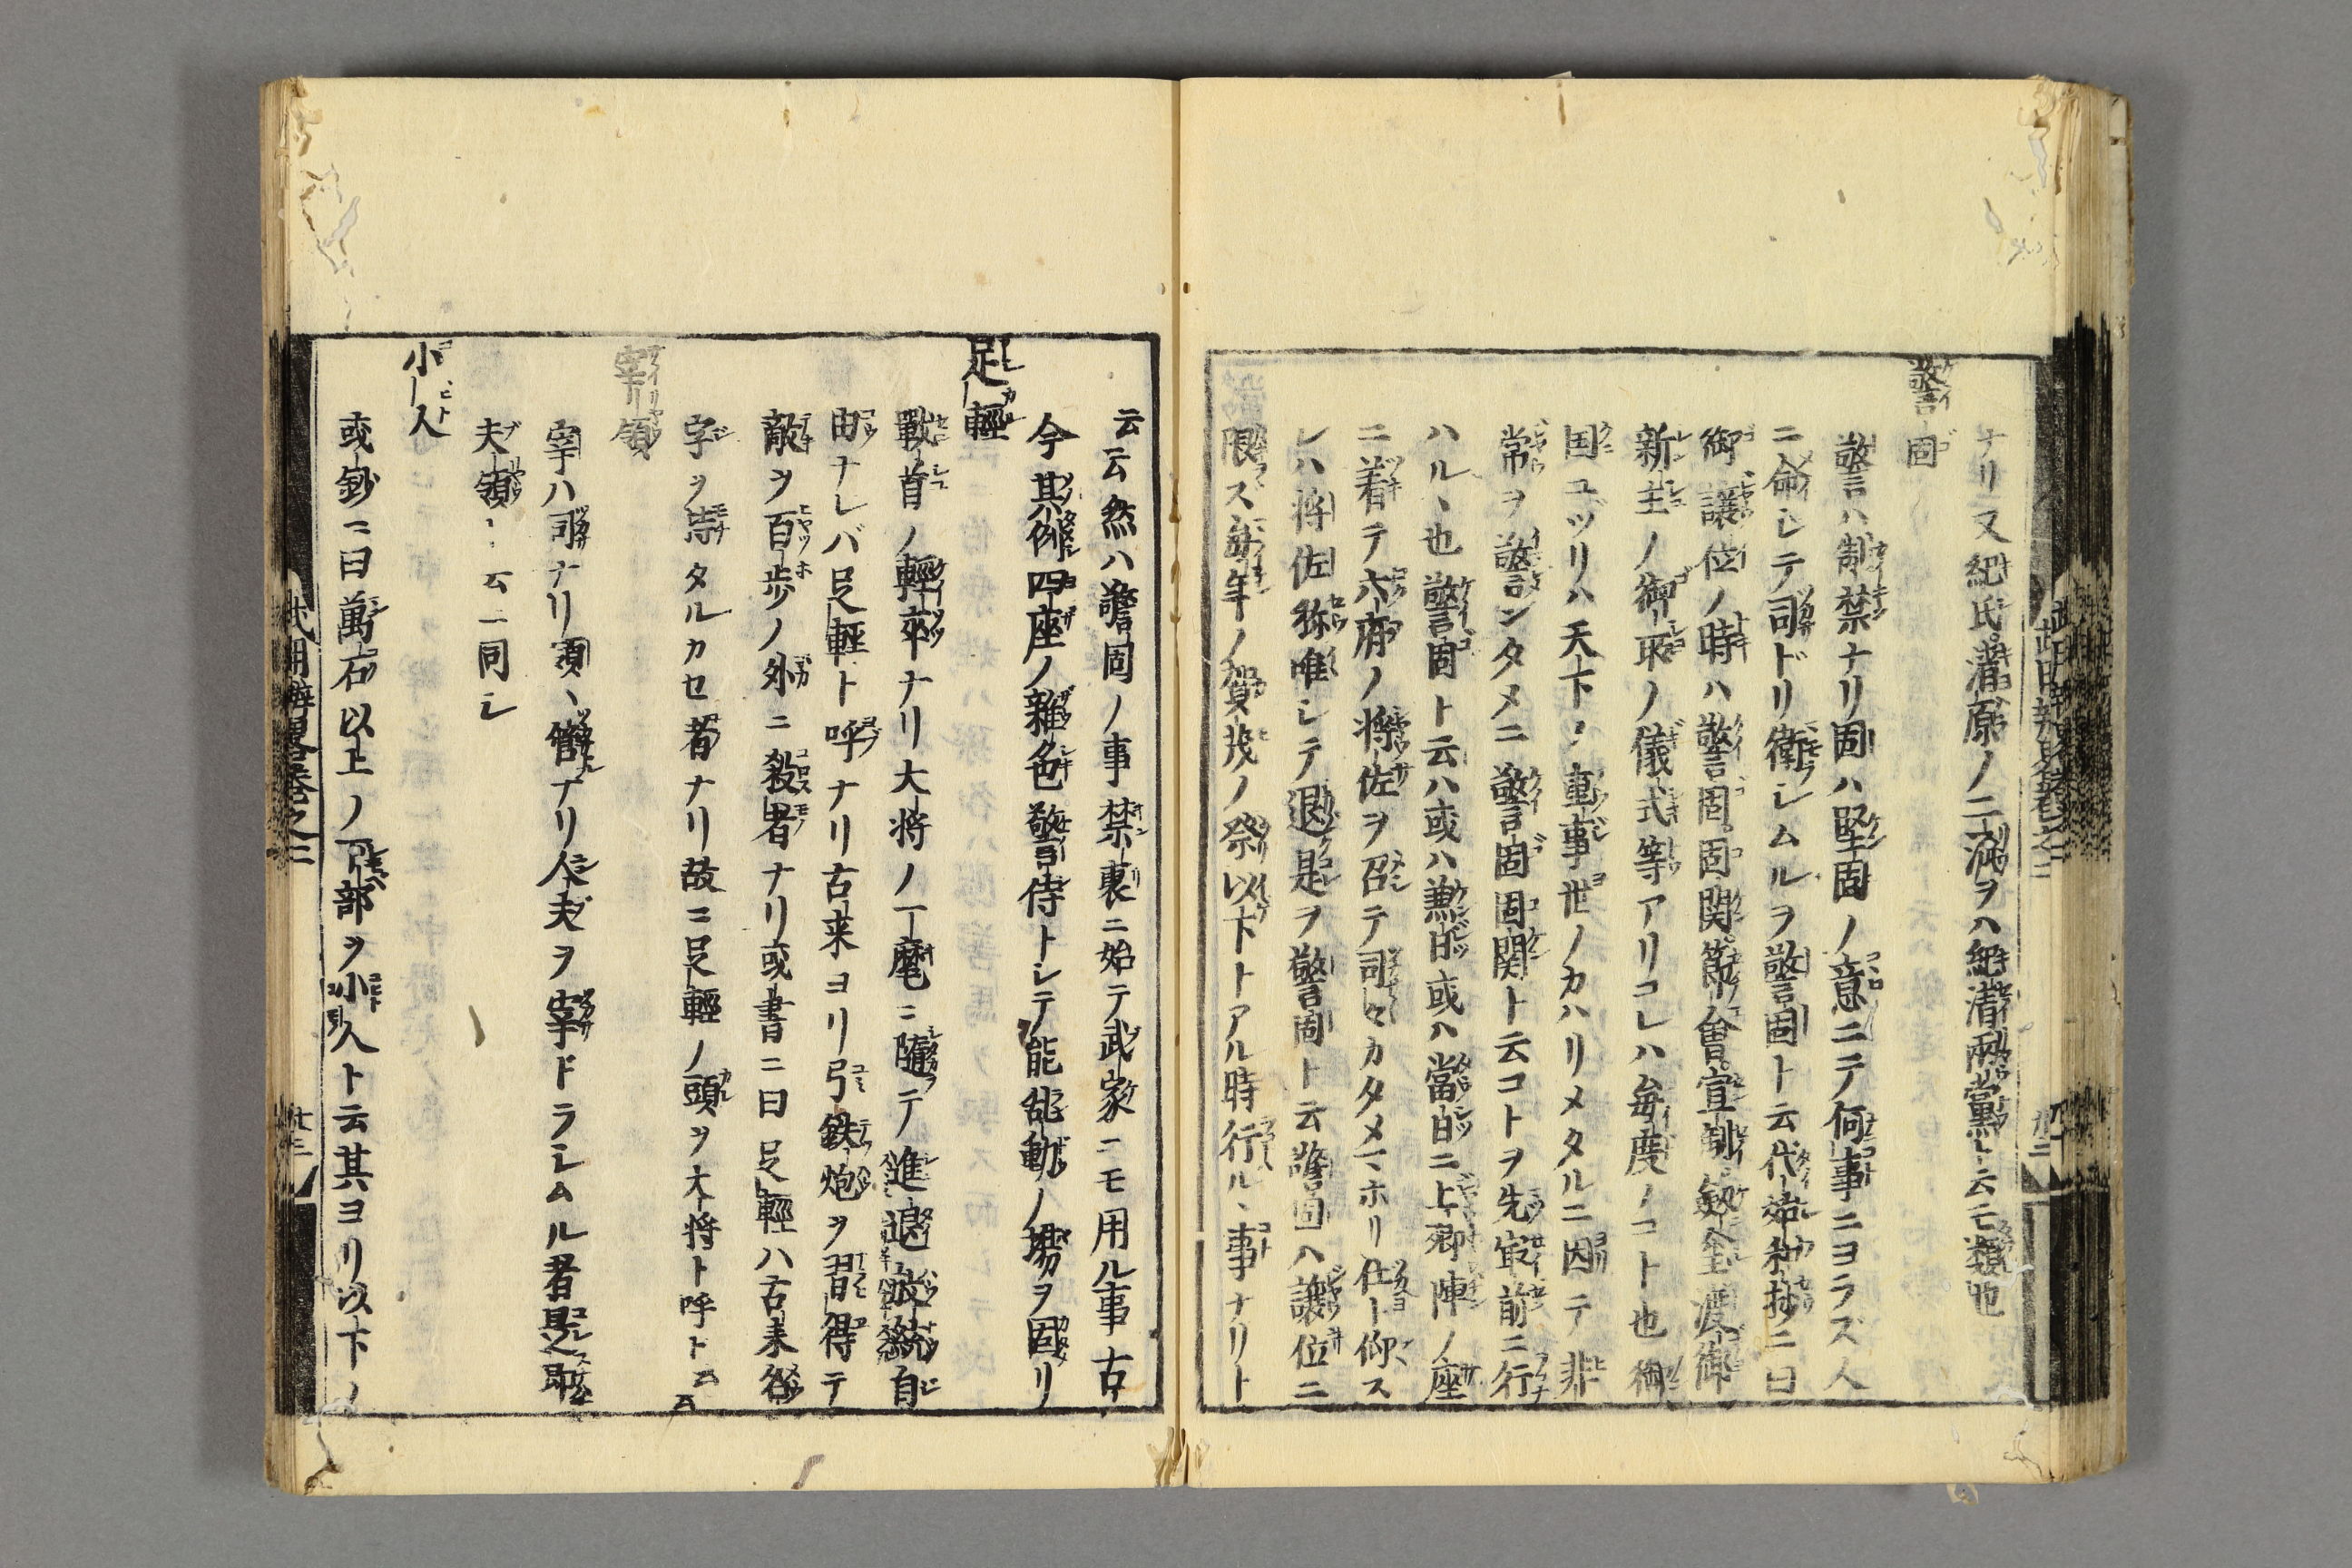 ナリ又紀氏清原ノ二流ヲハ紀清両黨ト云モ類也
警固
警ハ制禁ナリ固ハ堅固ノ意ニテ何事ニヨラズ人
ニ命シテ司ドリ衛シムルヲ警固ト云代始和抄ニ曰
御讓位ノ時ハ警固固関節會宣制釼璽渡御
新主ノ御所ノ儀式等アリコレハ毎度ノコト也
国ユヅリハ天下ノ重事世ノカハリメタルニ因テ非
常ヲ警ンタメニ警固固関ト云コトヲ先㝡前ニ行
ハルヽ也警固ト云ハ或ハ兼日或ハ當日ニ上卿陣ノ座
ニ着テ六府ノ將佐ヲ召テ司々カタメマホリ仕ト仰ス
レハ将佐称唯シテ退是ヲ警固ト云警固ハ讓位ニ
限ス毎年ノ賀茂ノ祭以下トアル時行ルヽ事ナリト
云云然ハ警固ノ事禁裏ニ始テ武家ニモ用ル事古
今其例四座ノ雜色警侍トシテ能乱動ノ場ヲ固リ
足輕
戰首ノ輕卒ナリ大将ノ一麾ニ隨テ進退
由ナレバ足輕ト呼ナリ古来ヨリ弓鉄炮ヲ習得テ
敵ヲ百歩ノ外ニ殺者ナリ或書ニ曰足輕ハ古来
字ヲ
タルカセ者ナリ故ニ足輕ノ頭ヲ大将ト呼ト云云
宰領
宰ハ司ナリ領ハ管ナリ人夫ヲ宰ドラシムル者是
夫領
同シ
小人
或鈔ニ曰萬石以上ノ下部ヲ小人ト云其ヨリ以下ノ
武用辨畧卷之二
廿三